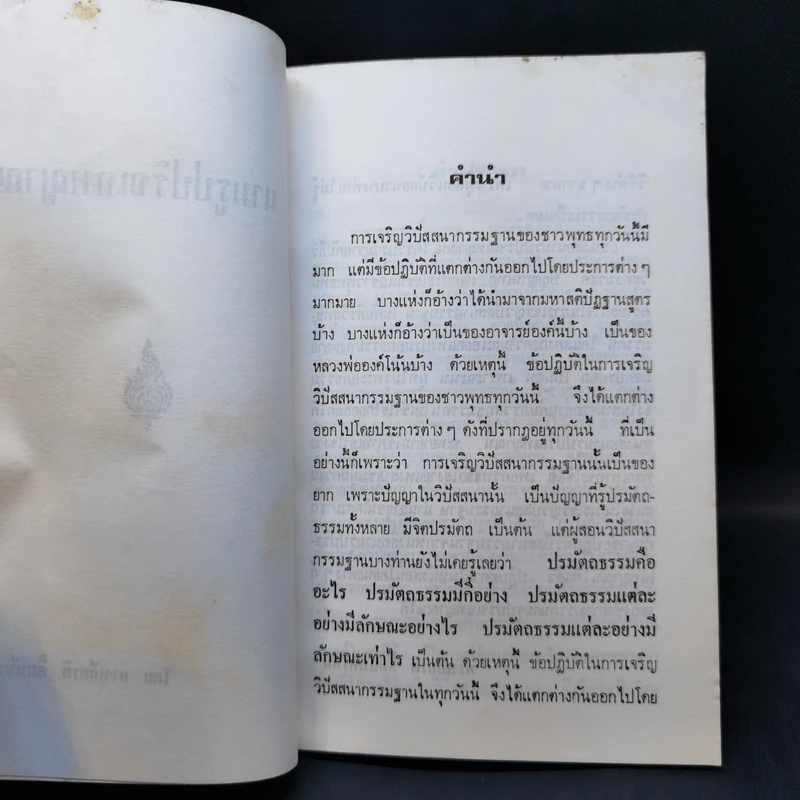 คำนำ
การเจริญวิปัสสนากรรมฐานของชาวพุทธทุกวันนี้มี
มาก แต่มีข้อปฏิบัติที่แตกต่างกันออกไปโดยประการต่าง ๆ
มากมาย บางแห่งก็อ้างว่าได้นำมาจากมหาสติปัฏฐานสูตร
บ้าง บางแห่งก็อ้างว่าเป็นของอาจารย์องค์นี้บ้าง เป็นของ
หลวงพ่อองค์โน้นบ้าง ด้วยเหตุนี้ ข้อปฏิบัติในการเจริญ
วิปัสสนากรรมฐานของชาวพุทธทุกวันนี้ จึงได้แตกต่าง
ออกไปโดยประการต่าง ๆ ดังที่ปรากฏอยู่ทุกวันนี้ ที่เป็น
อย่างนี้ก็เพราะว่า การเจริญวิปัสสนากรรมฐานนั้นเป็นของ
ยาก เพราะปัญญาในวิปัสสนานั้น เป็นปัญญาที่รู้ปรมัตถ-
ธรรมทั้งหลาย มีจิตปรมัตถ เป็นต้น แต่ผู้สอนวิปัสสนา
กรรมฐานบางท่านยังไม่เคยรู้เลยว่า ปรมัตถธรรมคือ
อะไร ปรมัตถธรรมมีกี่อย่าง ปรมัตถธรรมแต่ละ
อย่างมีลักษณะอย่างไร ปรมัตถธรรมแต่ละอย่างมี
ลักษณะเท่าไร เป็นต้น ด้วยเหตุนี้ ข้อปฏิบัติในการเจริญ
วิปัสสนากรรมฐานในทุกวันนี้ จึงได้แตกต่างกันออกไปโดย